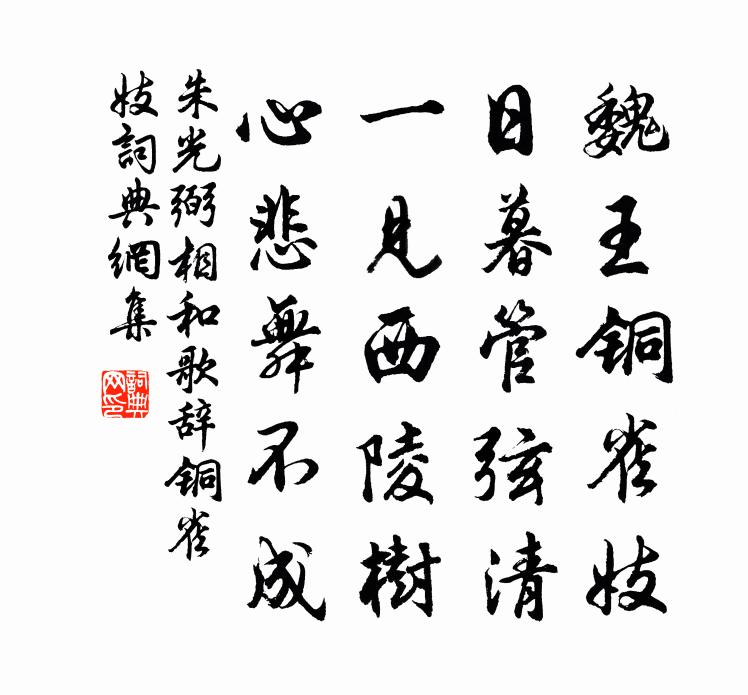 魏王铜雀妓
日暮管弦清
一見西陵樹
心悲舞不成
朱光弼相和歌辞铜雀
妓詞典網集
詞典
网印